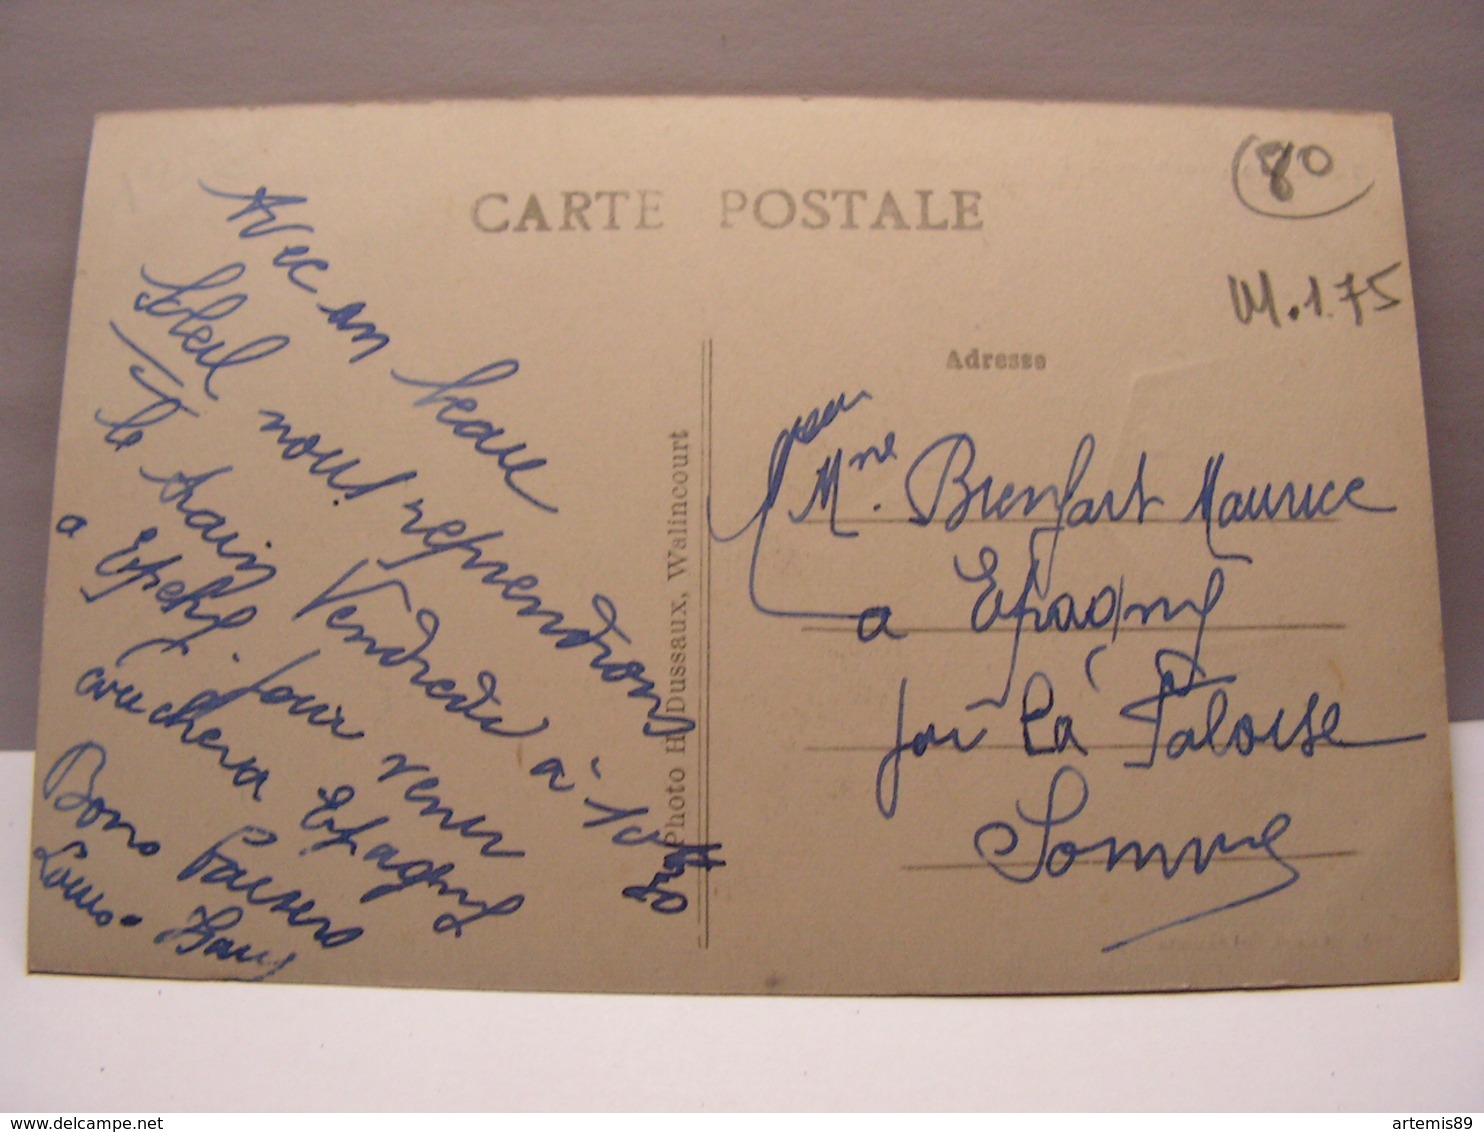 CARTE POSTALE
80
M.1.75
Adresse
Avec un beau
Soleil nous reprendrons
le train Vendredi à 10h
30
a Epehy. pour venir
coucher a Epagny
Bons Baisers
Louis.
Photo H. Dussaux, Walincourt
Mne. Bienfart Maurice
a Epagny
par La Faloise
Somme
artemis89